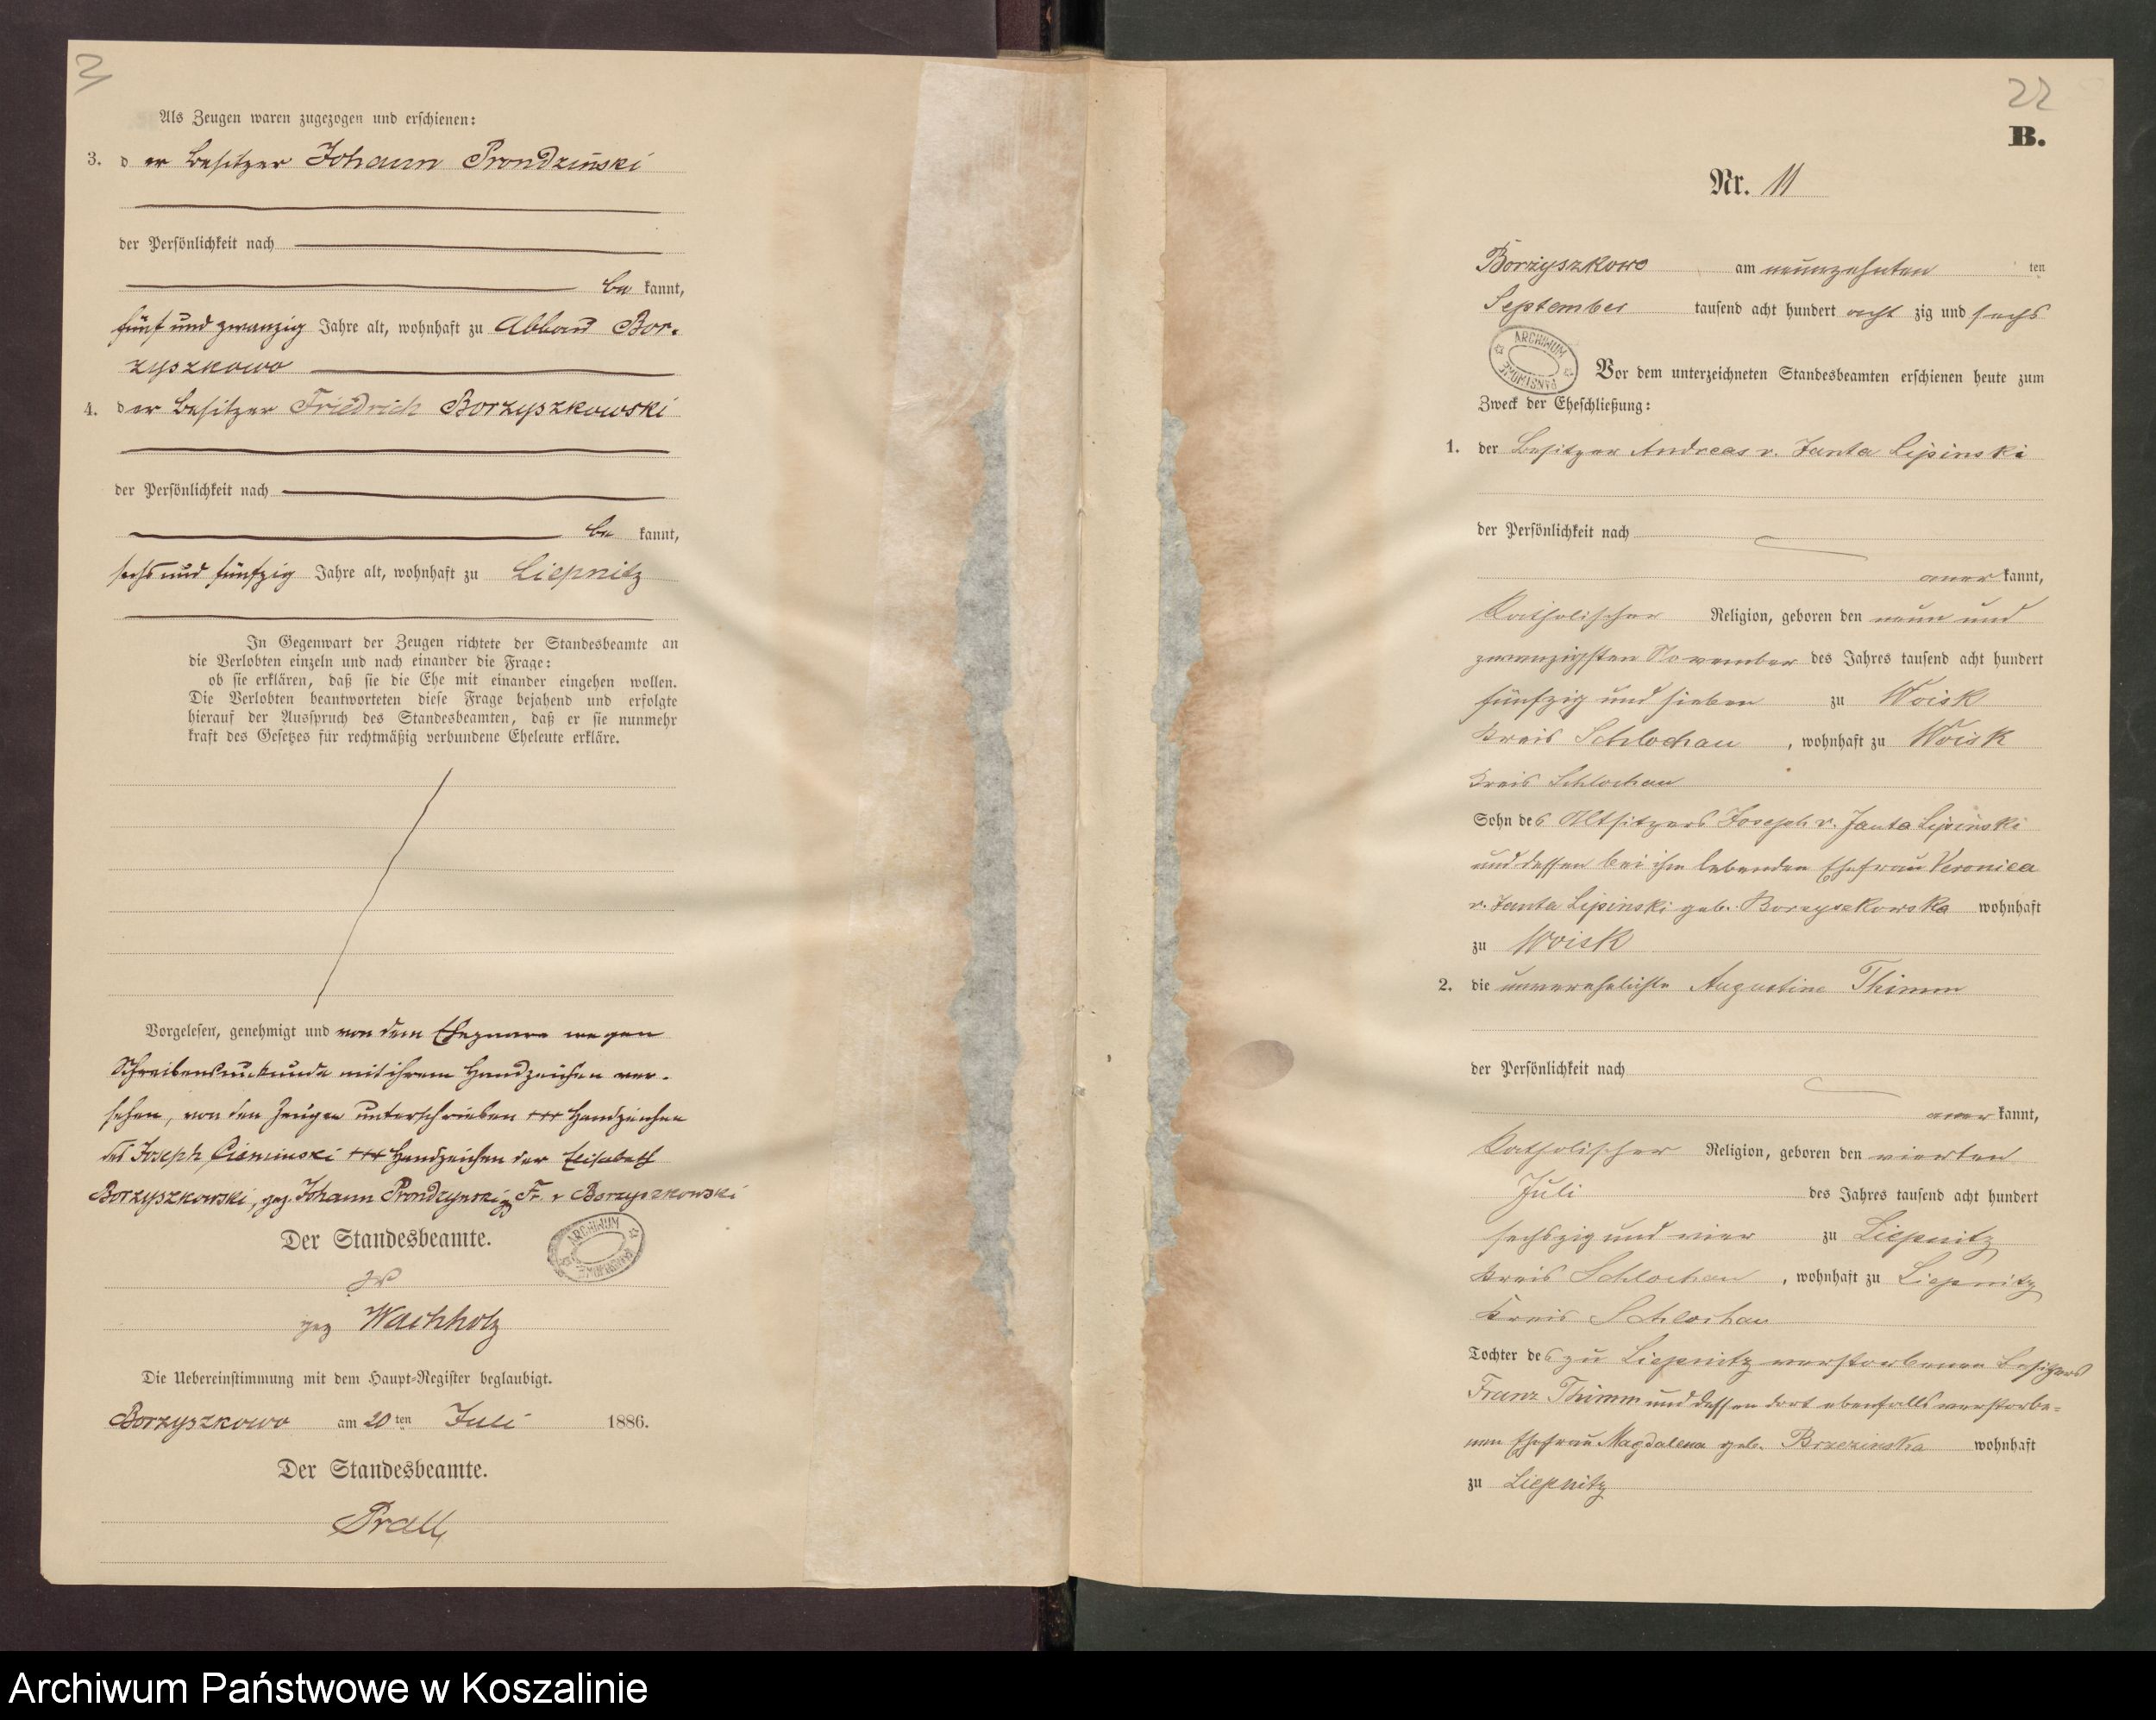 Als Zeugen waren zugezogen und erschienen:
3. d er Besitzer Johann Prondzinski
der Persönlichkeit nach
be kannt,
fünf und zwanzig Jahre alt, wohnhaft zu Abbau Bor-
zyszkowo
4. d er Besitzer Friedrich Borzyszkowski
der Persönlichkeit nach
be kannt,
sechs und fünfzig Jahre alt, wohnhaft zu Liepnitz
In Gegenwart der Zeugen richtete der Standesbeamte an
die Verlobten einzeln und nach einander die Frage:
ob sie erklären, daß sie die Ehe mit einander eingehen wollen.
Die Verlobten beantworteten diese Frage bejahend und erfolgte
hierauf der Ausspruch des Standesbeamten, daß er sie nunmehr
kraft des Gesetzes für rechtmäßig verbundene Eheleute erkläre.
Vorgelesen, genehmigt und von dem Ehepaare wegen
Schreibensunkunde mit ihrem Handzeichen ver-
sehen, von den Zeugen unterschrieben +++ Handzeichen
des Joseph Cieminski +++ Handzeichen der Elisabeth
Borzyszkowski, gez. Johann Prondzynski, Fr. v Borzyszkowski
Der Standesbeamte.
gez Wachholz
Die Uebereinstimmung mit dem Haupt-Register beglaubigt.
Borzyszkowo am 20 ten Juli 1886.
Der Standesbeamte.
Prall
22
B.
Nr. 11
Borzyszkowo am neunzehnten ten
September tausend acht hundert acht zig und sechs
ARCHIWUM PAŃSTWOWE
Vor dem unterzeichneten Standesbeamten erschienen heute zum
Zweck der Eheschließung:
1. der Besitzer Andreas v. Janta Lipinski
der Persönlichkeit nach
aner kannt,
Katholischer Religion, geboren den neun und
zwanzigsten November des Jahres tausend acht hundert
fünfzig und sieben zu Woisk
Kreis Schlochau, wohnhaft zu Woisk
Kreis Schlochau
Sohn des Altsitzers Joseph v. Janta Lipinski
und dessen bei ihm lebenden Ehefrau Veronica
v. Janta Lipinski geb. Borzyszkowska wohnhaft
zu Woisk
2. die unverehelichte Augustine Thimm
der Persönlichkeit nach
aner kannt,
Katholischer Religion, geboren den vierten
Juli des Jahres tausend acht hundert
sechszig und vier zu Liepnitz
Kreis Schlochau, wohnhaft zu Liepnitz
Kreis Schlochau
Tochter des zu Liepnitz verstorbenen Besitzers
Franz Thimm und dessen dort ebenfalls verstorbe-
nen Ehefrau Magdalena geb. Brzezinska wohnhaft
zu Liepnitz
Archiwum Państwowe w Koszalinie